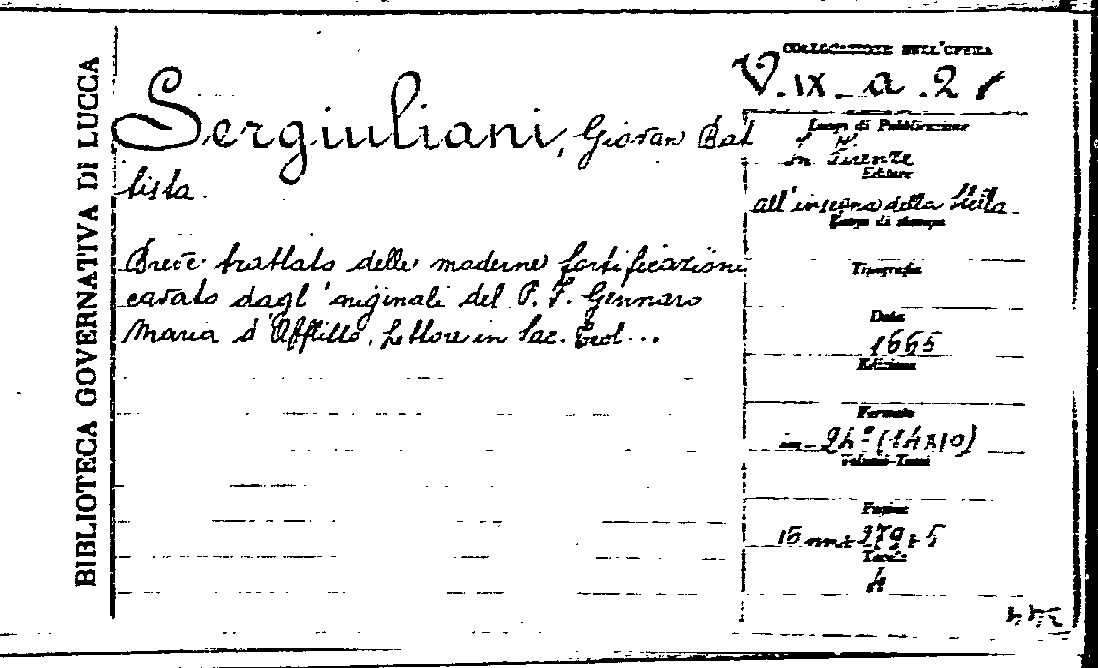 BIBLIOTECA GOVERNATIVA DI LUCCA
Sergiuliani, Giovan Bat
tista
Breve trattato delle moderne fortificazioni
cavato dagl'originali del P. F. Gennaro
Maria d'Afflitto, Lettore in Sac. Teol...
COLLOCAZIONE DELL'OPERA
V. IX - a . 2
Luogo di Pubblicazione
in Firenze
Editore
all'insegna della Stella
Luogo di stampa
Tipografia
Data
1665
Edizione
Formato
in - 24º (14x10)
Volumi-Tomi
Pagine
15 nn + 279 + 5
Tavole
4